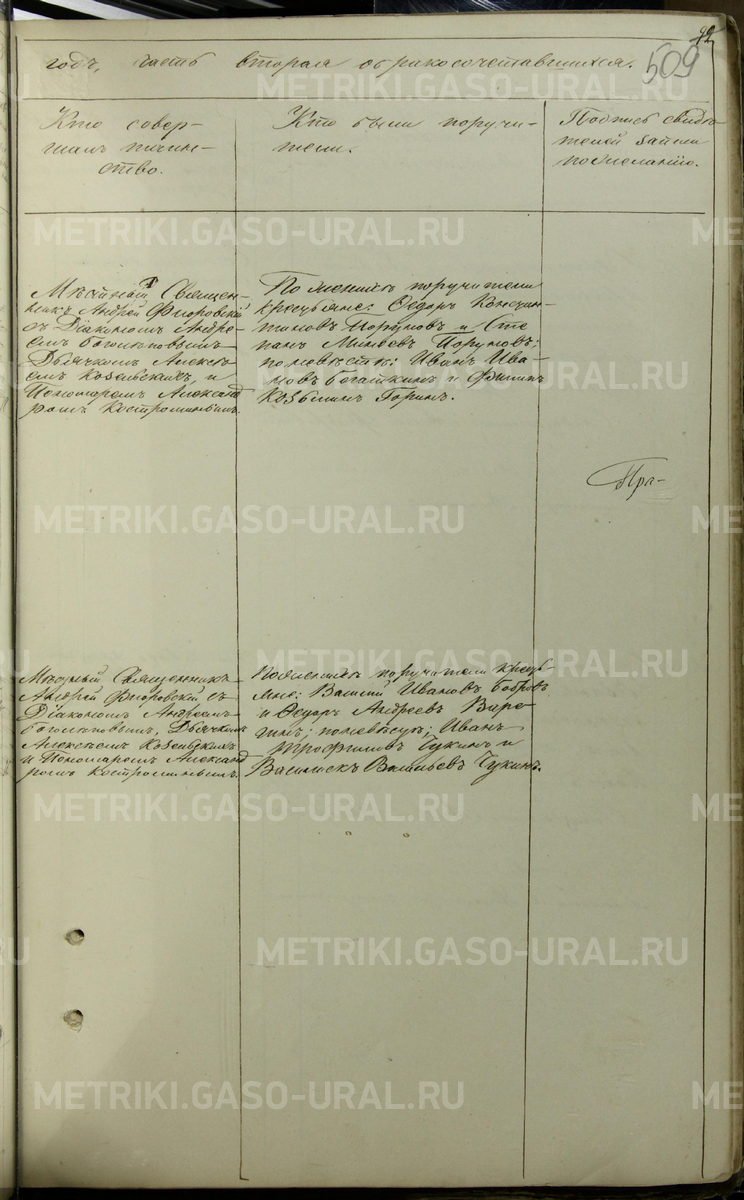 годъ, часть вторая о бракосочетавшихся.
509
Кто совер-
шалъ таин-
ство.
Кто были поручи-
тели.
Подпись свидѣ-
телей записи
по желанію.
Мѣстный Священ-
никъ Андрей Флоровскій
съ Діакономъ Андре-
емъ Боголѣповымъ
Дьячкомъ Алексѣ-
емъ Козельскимъ, и
Пономаремъ Александ
ромъ Костроминымъ.
По женихѣ поручители
крестьяне: Ѳедоръ Констан-
тиновъ и Сте-
панъ
по невѣстѣ: Иванъ Ива-
новъ и Филипъ
Козьминъ Горинъ.
Пра-
Мѣстный Священникъ
Андрей Флоровскій съ
Діакономъ Андреемъ
Боголѣповымъ, Дьячкомъ
Алексѣемъ Козельскимъ
и Пономаремъ Александ
ромъ Костроминымъ.
По женихѣ поручители кресть-
яне: Василій Ивановъ Бобровъ
и Ѳедоръ Андреевъ
по невѣстѣ: Иванъ
Трофимовъ Чукинъ и
Василій Васильевъ Чукинъ.
METRIKI.GASO-URAL.RU